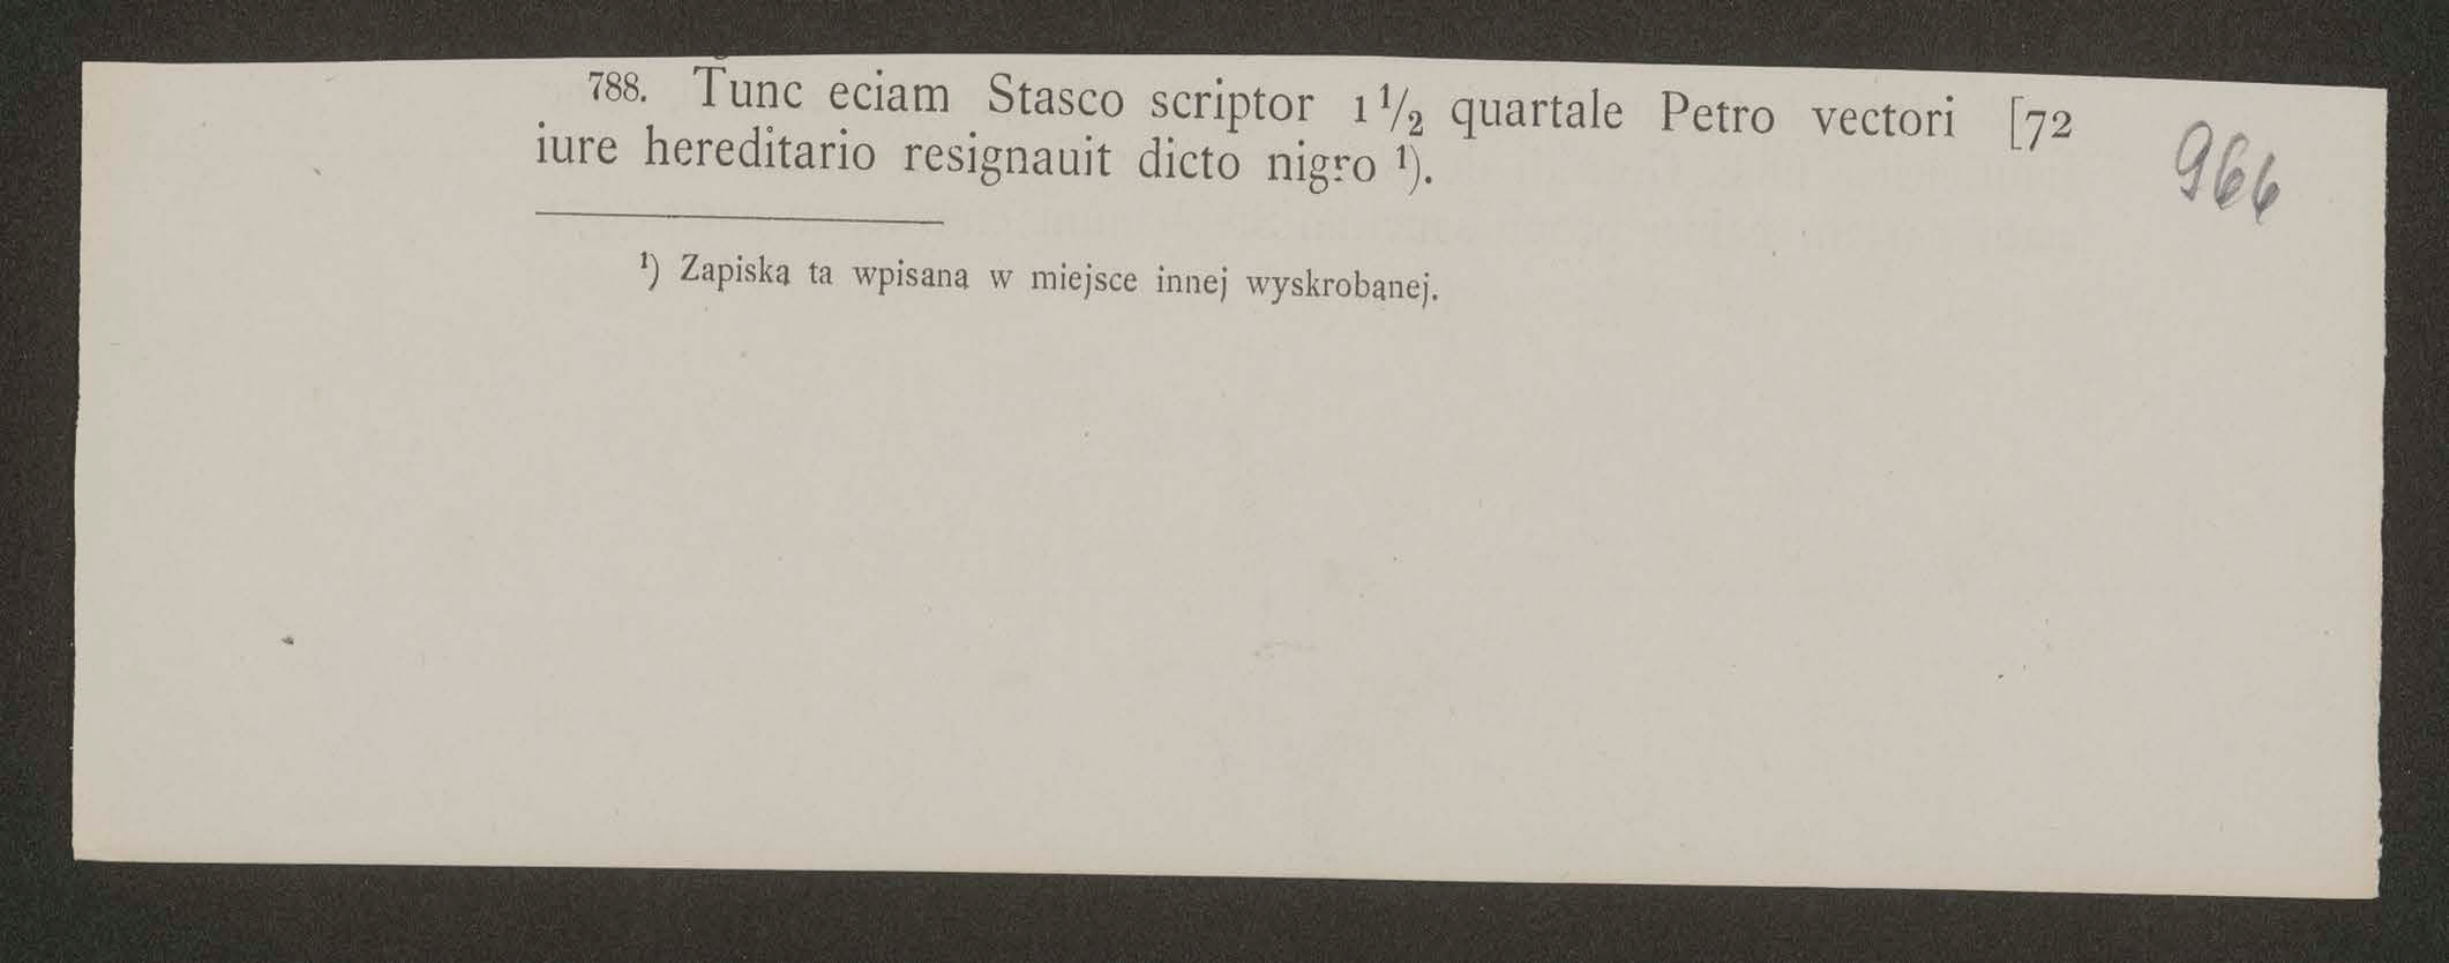 788. Tunc eciam Stasco scriptor 1 1/2 quartale Petro vectori [72
iure hereditario resignauit dicto nigro ¹).
966
¹) Zapiska ta wpisana w miejsce innej wyskrobanej.